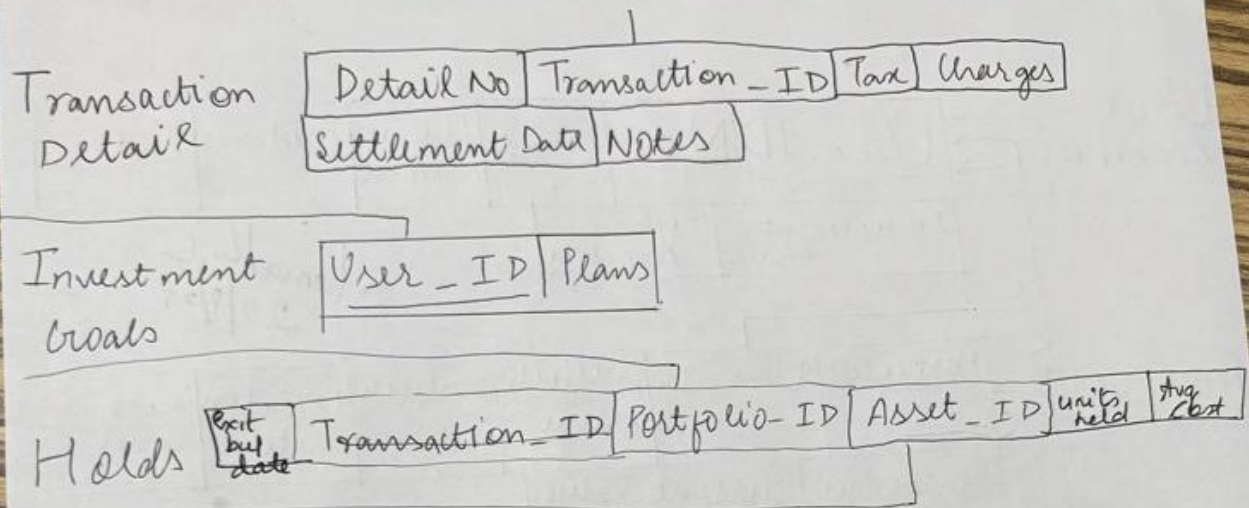 Transaction Detail No Transaction_ID Tax Charges
Detail Settlement Date Notes
Investment User_ID Plans
Goals
Holds exit buy date Transaction_ID Portfolio-ID Asset_ID units held Avg Cost